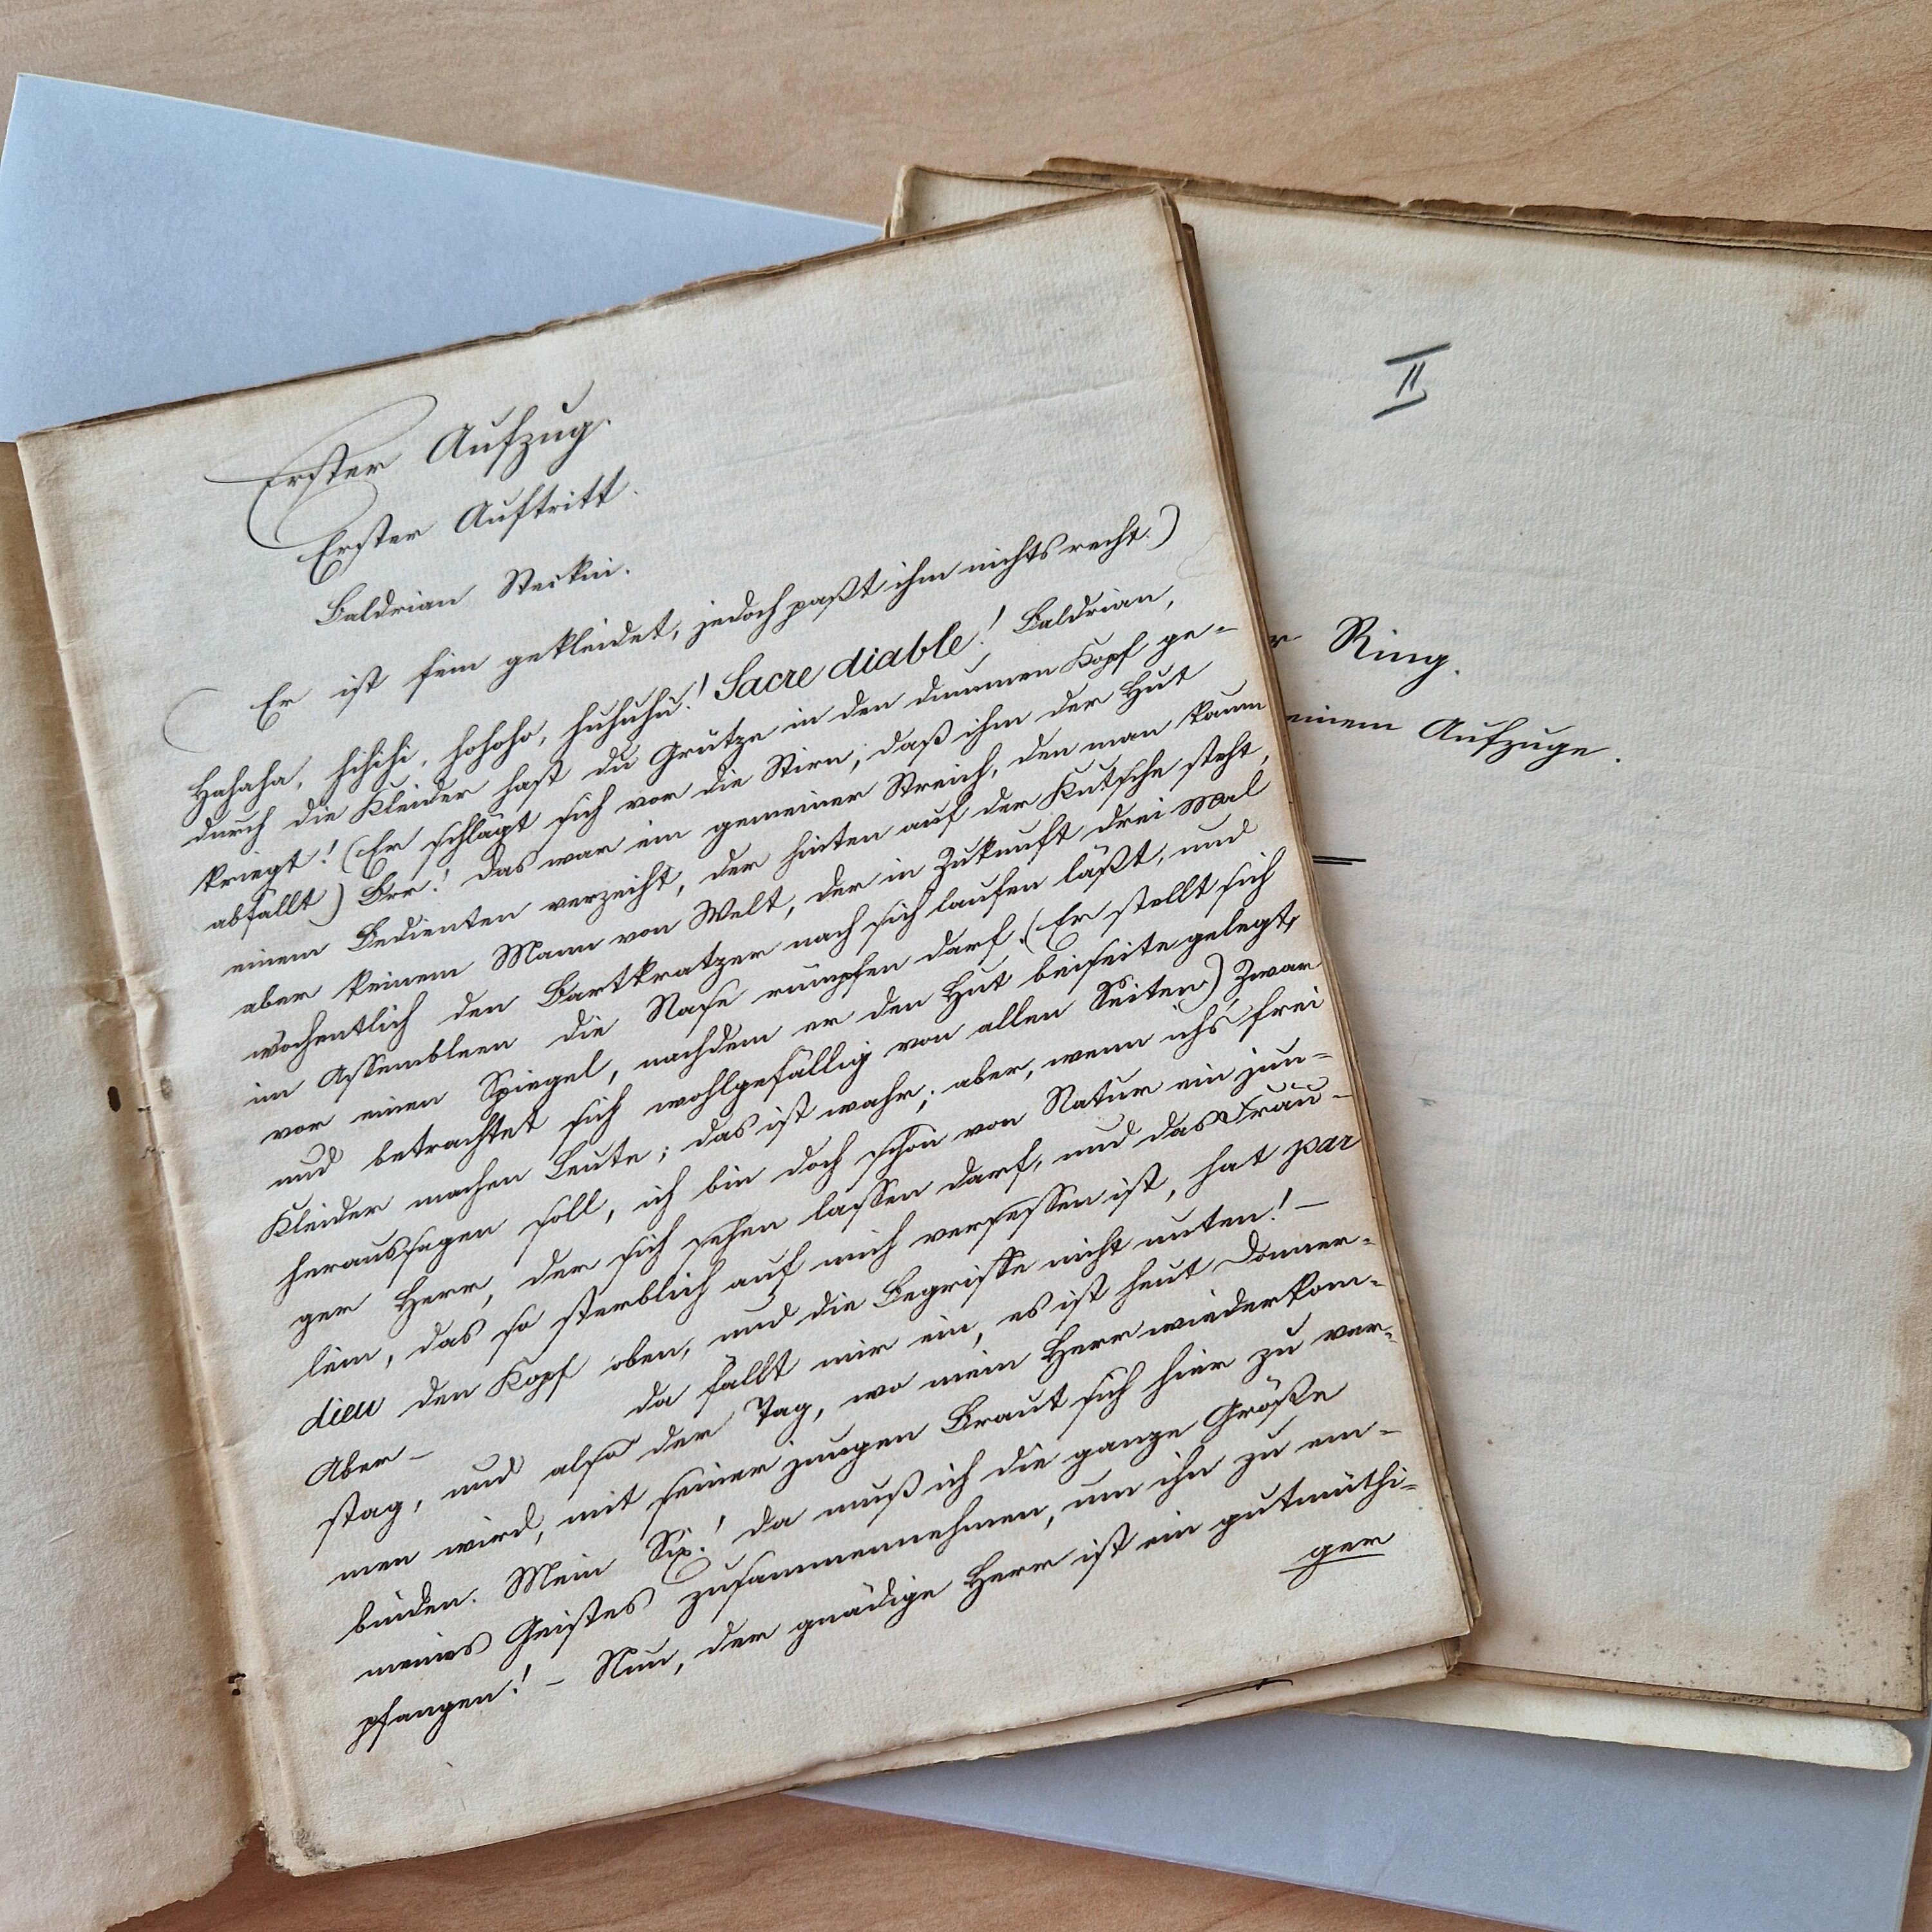 Erster Aufzug.
Erster Auftritt.
Baldrian Steikni.
(Er ist fein gekleidet, jedoch paßt ihm nichts recht.)
Hahaha, hihihi, hohoho, huhuhu! Sacre diable! Baldrian,
durch die Kleider hast du Grütze in den dummen Kopf ge-
kriegt! (Er schlägt sich vor die Stirn, daß ihm der Hut
abfällt) Brr! das war ein gemeiner Streich, den man kaum
einem Bedienten verzeiht, der hinten auf der Kutsche steht,
aber keinem Mann von Welt, der in Zukunft drei Mal
wöchentlich den Bartkratzer nach sich laufen läßt, und
in Assembleen die Nase rümpfen darf. (Er stellt sich
vor einen Spiegel, nachdem er den Hut beiseite gelegt,
und betrachtet sich wohlgefällig von allen Seiten) Zwar
Kleider machen Leute; das ist wahr; aber, wenn ichs frei
heraussagen soll, ich bin doch schon von Natur ein jun-
ger Herr, der sich sehen lassen darf, und das Fräu-
lein, das so sterblich auf mich versessen ist, hat par
dieu den Kopf oben, und die Begriffe nicht unten! –
Aber – da fällt mir ein, es ist heut Donner-
stag, und also der Tag, wo mein Herr wiederkom-
men wird, mit seiner jungen Braut sich hier zu ver-
binden. Mein Six! da muß ich die ganze Größe
meines Geistes zusammennehmen, um ihn zu em-
pfangen! – Nun, der gnädige Herr ist ein gutmüthi-
ger
II
r Ring.
einem Aufzuge.